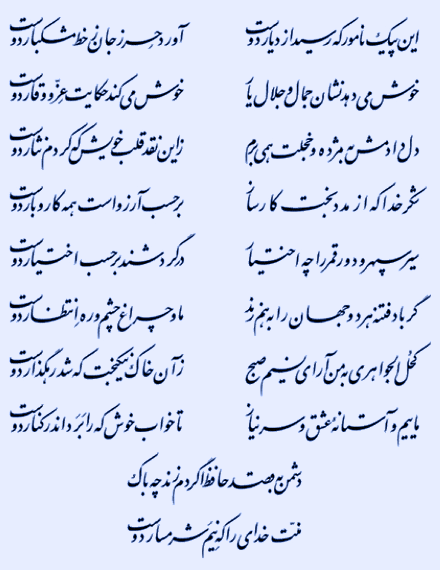 این پیک نامور که رسید از دیار دوست آورد حرز جان ز خط مشکبار دوست
خوش می‌دهد نشان جمال و جلال یار خوش می‌کند حکایت عزّ و وقار دوست
دل دادمش به مژده و خجلت همی برم زاین نقد قلب خویش که کردم نثار دوست
شکر خدا که از مدد بخت کارساز بر حسب آرزو است همه کار و بار دوست
سیر سپهر و دور قمر را چه اختیار در گردشند بر حسب اختیار دوست
گر باد فتنه هر دو جهان را به هم زند ما و چراغ چشم و ره انتظار دوست
کحل الجواهری به من آر ای نسیم صبح زآن خاک نیکبخت که شد رهگذار دوست
ماییم و آستانه عشق و سر نیاز تا خواب خوش که را برد اندر کنار دوست
دشمن به قصد حافظ اگر دم زند چه باک
منّت خدای را که نیم شرمسار دوست